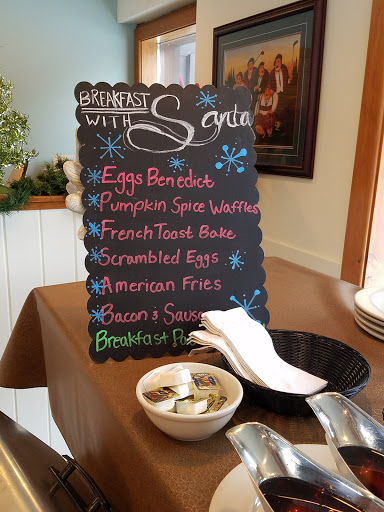 BREAKFAST
WITH Santa
Eggs Benedict
Pumpkin Spice Waffles
French Toast Bake
Scrambled Eggs
American Fries
Bacon &
Breakfast